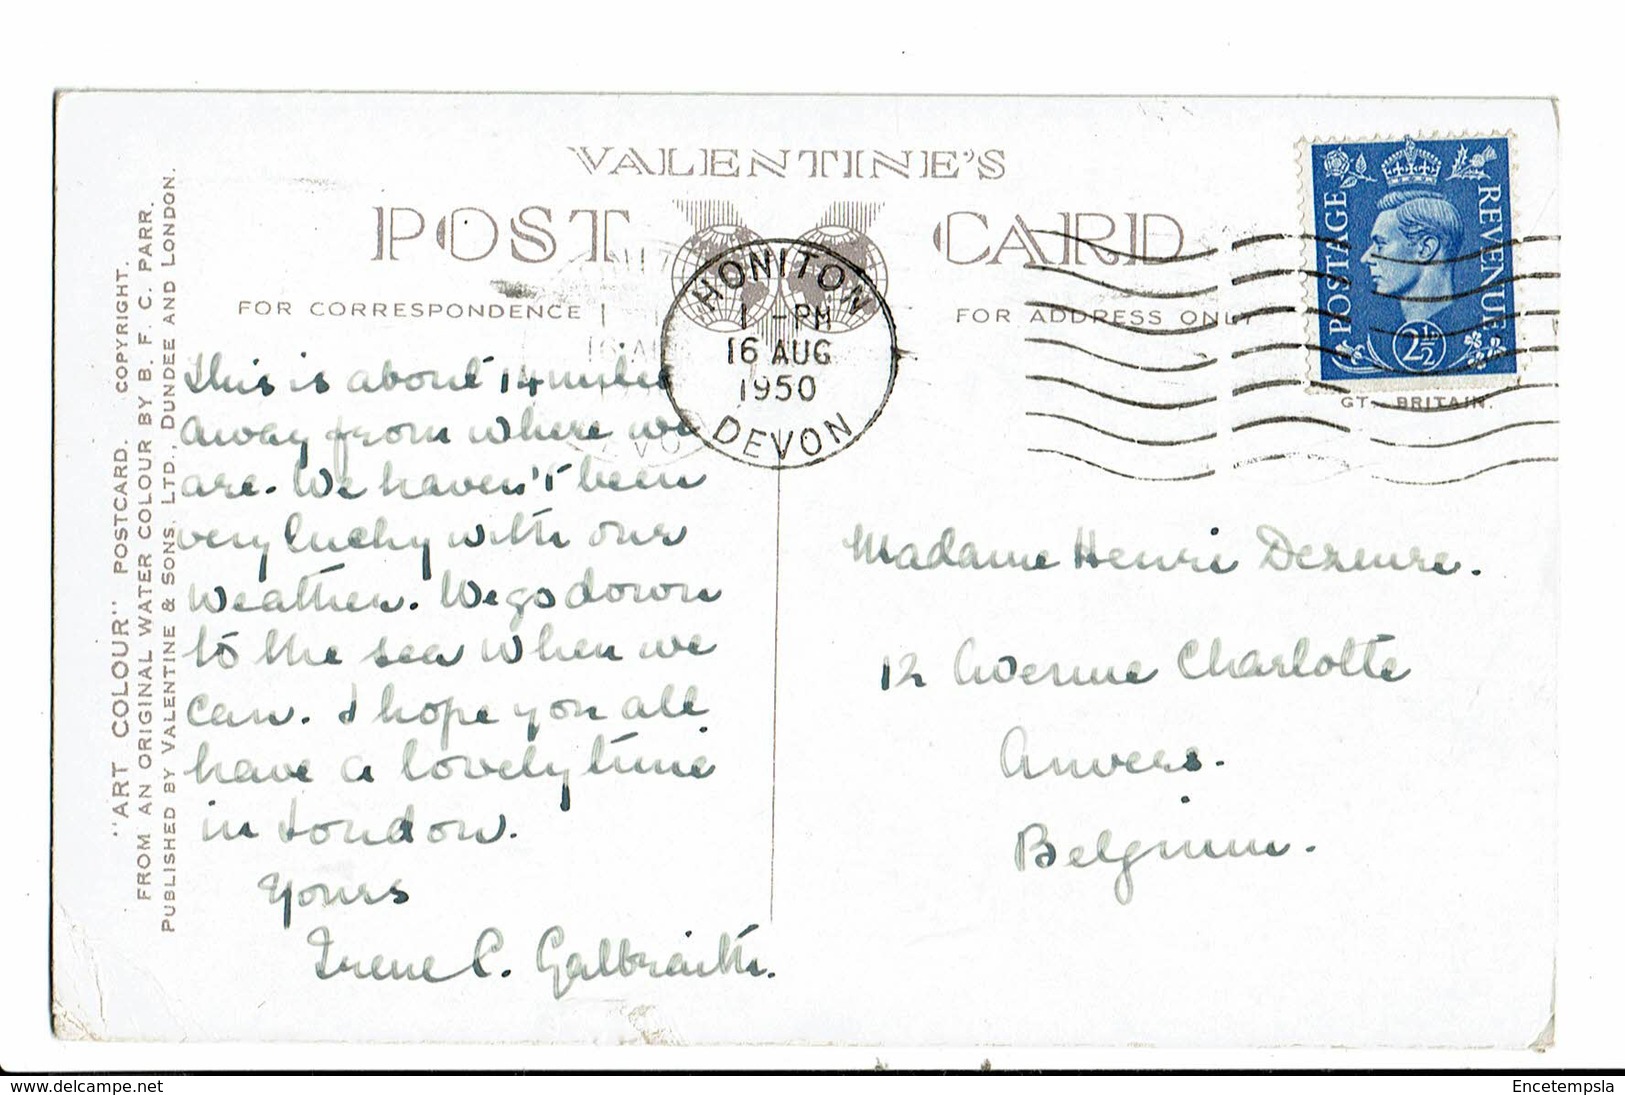 VALENTINE'S
POST CARD
FOR CORRESPONDENCE
FOR ADDRESS ONLY
HONITON
1 - PM
16 AUG
1950
DEVON
POSTAGE REVENUE
2½
GT. BRITAIN.
"ART COLOUR" POSTCARD. COPYRIGHT.
FROM AN ORIGINAL WATER COLOUR BY B. F. C. PARR.
PUBLISHED BY VALENTINE & SONS, LTD., DUNDEE AND LONDON.
This is about 14 miles
away from where we
are. We haven't been
very lucky with our
weather. We go down
to the sea when we
can. I hope you all
have a lovely time
in London.
Yours
Irene C. Galbraith.
Madame Henri Dezeure.
12 Avenue Charlotte
Anvers.
Belgium.
delcampe.net
Encetempsla